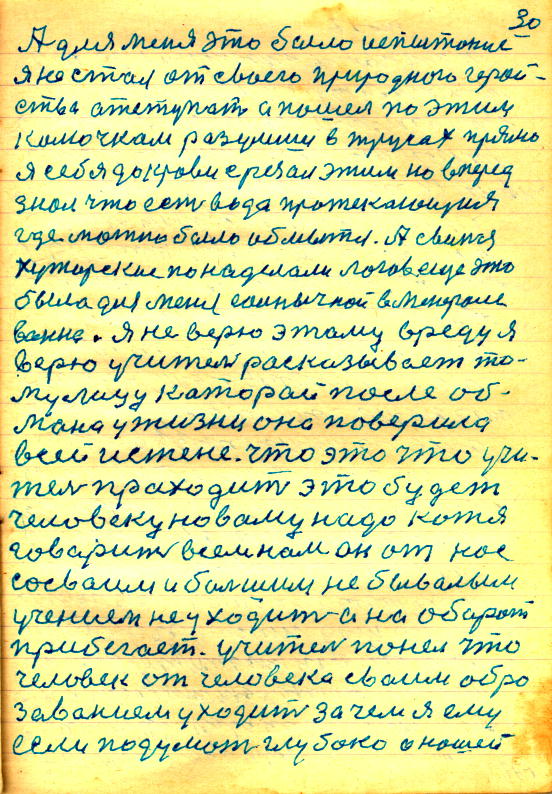 30
А для меня это было испытание
я не стал от своего природного герой-
ства атступать а пошел по этим
комочкам разумши в трусах прямо
я себя до крови срезал этим но вперед
знал что есть вода протекающия
где можно было обмытся. А свиньи
хуторские понаделали логов еще это
была для меня солнычной в Минерале
ванне. я не верю этому вреду я
верю учитель расказывает то-
му лицу каторай после об-
мана у жизни она поверила
всей истене. что это что учи-
тель праходит это будет
человеку новаму надо хотя
говарить всем нам он от нас
сосваим и большим не бывалым
учением не уходит а на обарот
прибегает. учитель понел что
человек от человека сваим обро
заванием уходит зачем я ему
если подумать глубоко о нашей